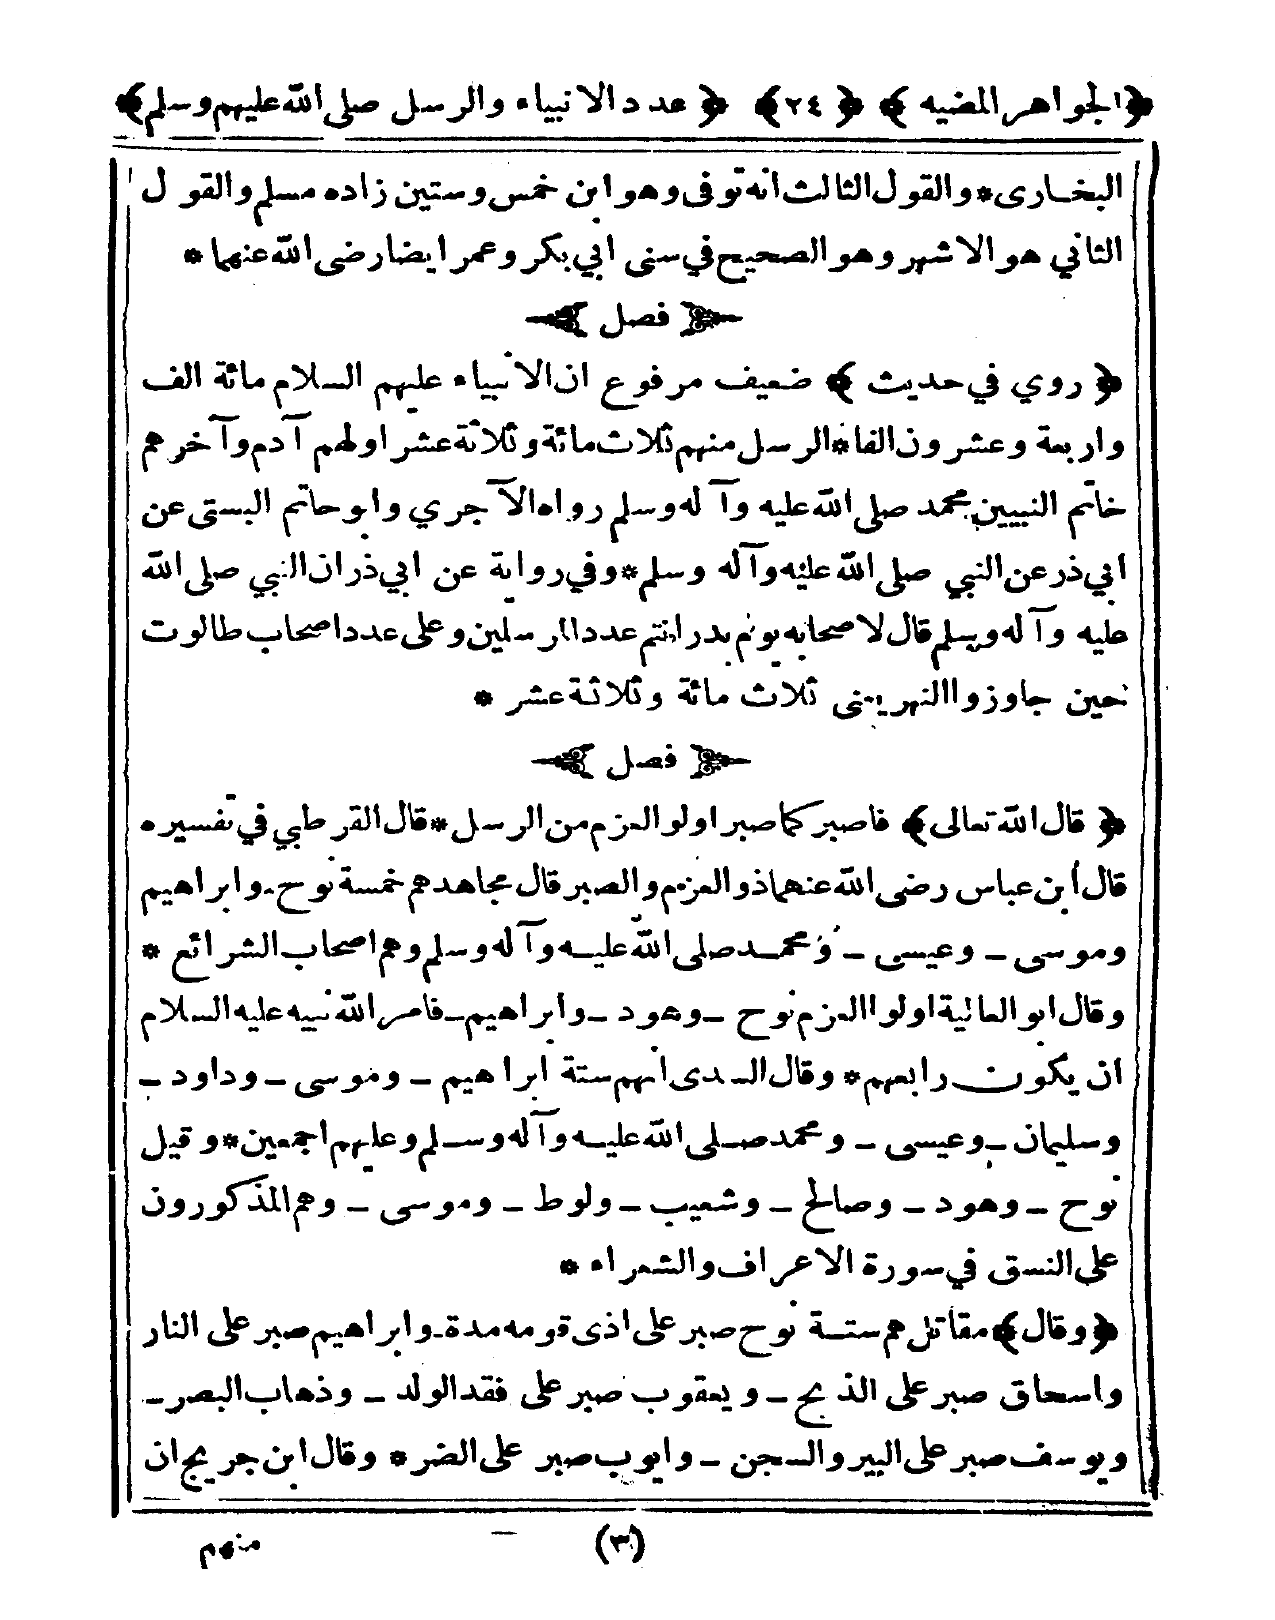 ﴿الجواهر المضيه﴾ ﴿٢٤﴾ ﴿عدد الانبياء والرسل صلى الله عليهم وسلم﴾
البخارى * والقول الثالث انه توفى وهو ابن خمس وستين زاده مسلم والقول
الثاني هو الاشهر وهو الصحيح في سنى ابي بكر وعمر ايضا رضى الله عنهما *
﴿ فصل ﴾
﴿ روي في حديث ﴾ ضعيف مرفوع ان الانبياء عليهم السلام مائة الف
واربعة وعشرون الفا * الرسل منهم ثلاث مائة وثلاثة عشر اولهم آدم وآخرهم
خاتم النبيين محمد صلى الله عليه وآله وسلم رواه الآجري وابو حاتم البستى عن
ابي ذر عن النبي صلى الله عليه وآله وسلم * وفي رواية عن ابي ذر ان النبي صلى الله
عليه وآله وسلم قال لاصحابه يوم بدر انتم عدد المرسلين وعلى عدد اصحاب طالوت
حين جاوزوا النهر يعنى ثلاث مائة وثلاثة عشر *
﴿ فصل ﴾
﴿ قال الله تعالى ﴾ فاصبر كما صبر اولو العزم من الرسل * قال القرطبي في تفسيره
قال ابن عباس رضى الله عنهما ذو العزم والصبر قال مجاهد هم خمسة نوح ـ وابراهيم
وموسى ـ وعيسى ـ ومحمد صلى الله عليه وآله وسلم وهم اصحاب الشرائع *
وقال ابو العالية اولوا العزم نوح ـ وهود ـ وابراهيم ـ فامر الله نبيه عليه السلام
ان يكون رابعهم * وقال السدى انهم ستة ابراهيم ـ وموسى ـ وداود ـ
وسليمان ـ وعيسى ـ ومحمد صلى الله عليه وآله وسلم وعليهم اجمعين * وقيل
نوح ـ وهود ـ وصالح ـ وشعيب ـ ولوط ـ وموسى ـ وهم المذكورون
على النسق في سورة الاعراف والشعراء *
﴿ وقال ﴾ مقاتل هم ستة نوح صبر على اذى قومه مدة ـ وابراهيم صبر على النار
واسحاق صبر على الذبح ـ ويعقوب صبر على فقد الولد ـ وذهاب البصر ـ
ويوسف صبر على البير والسجن ـ وايوب صبر على الضر * وقال ابن جريج ان
(٣) منهم